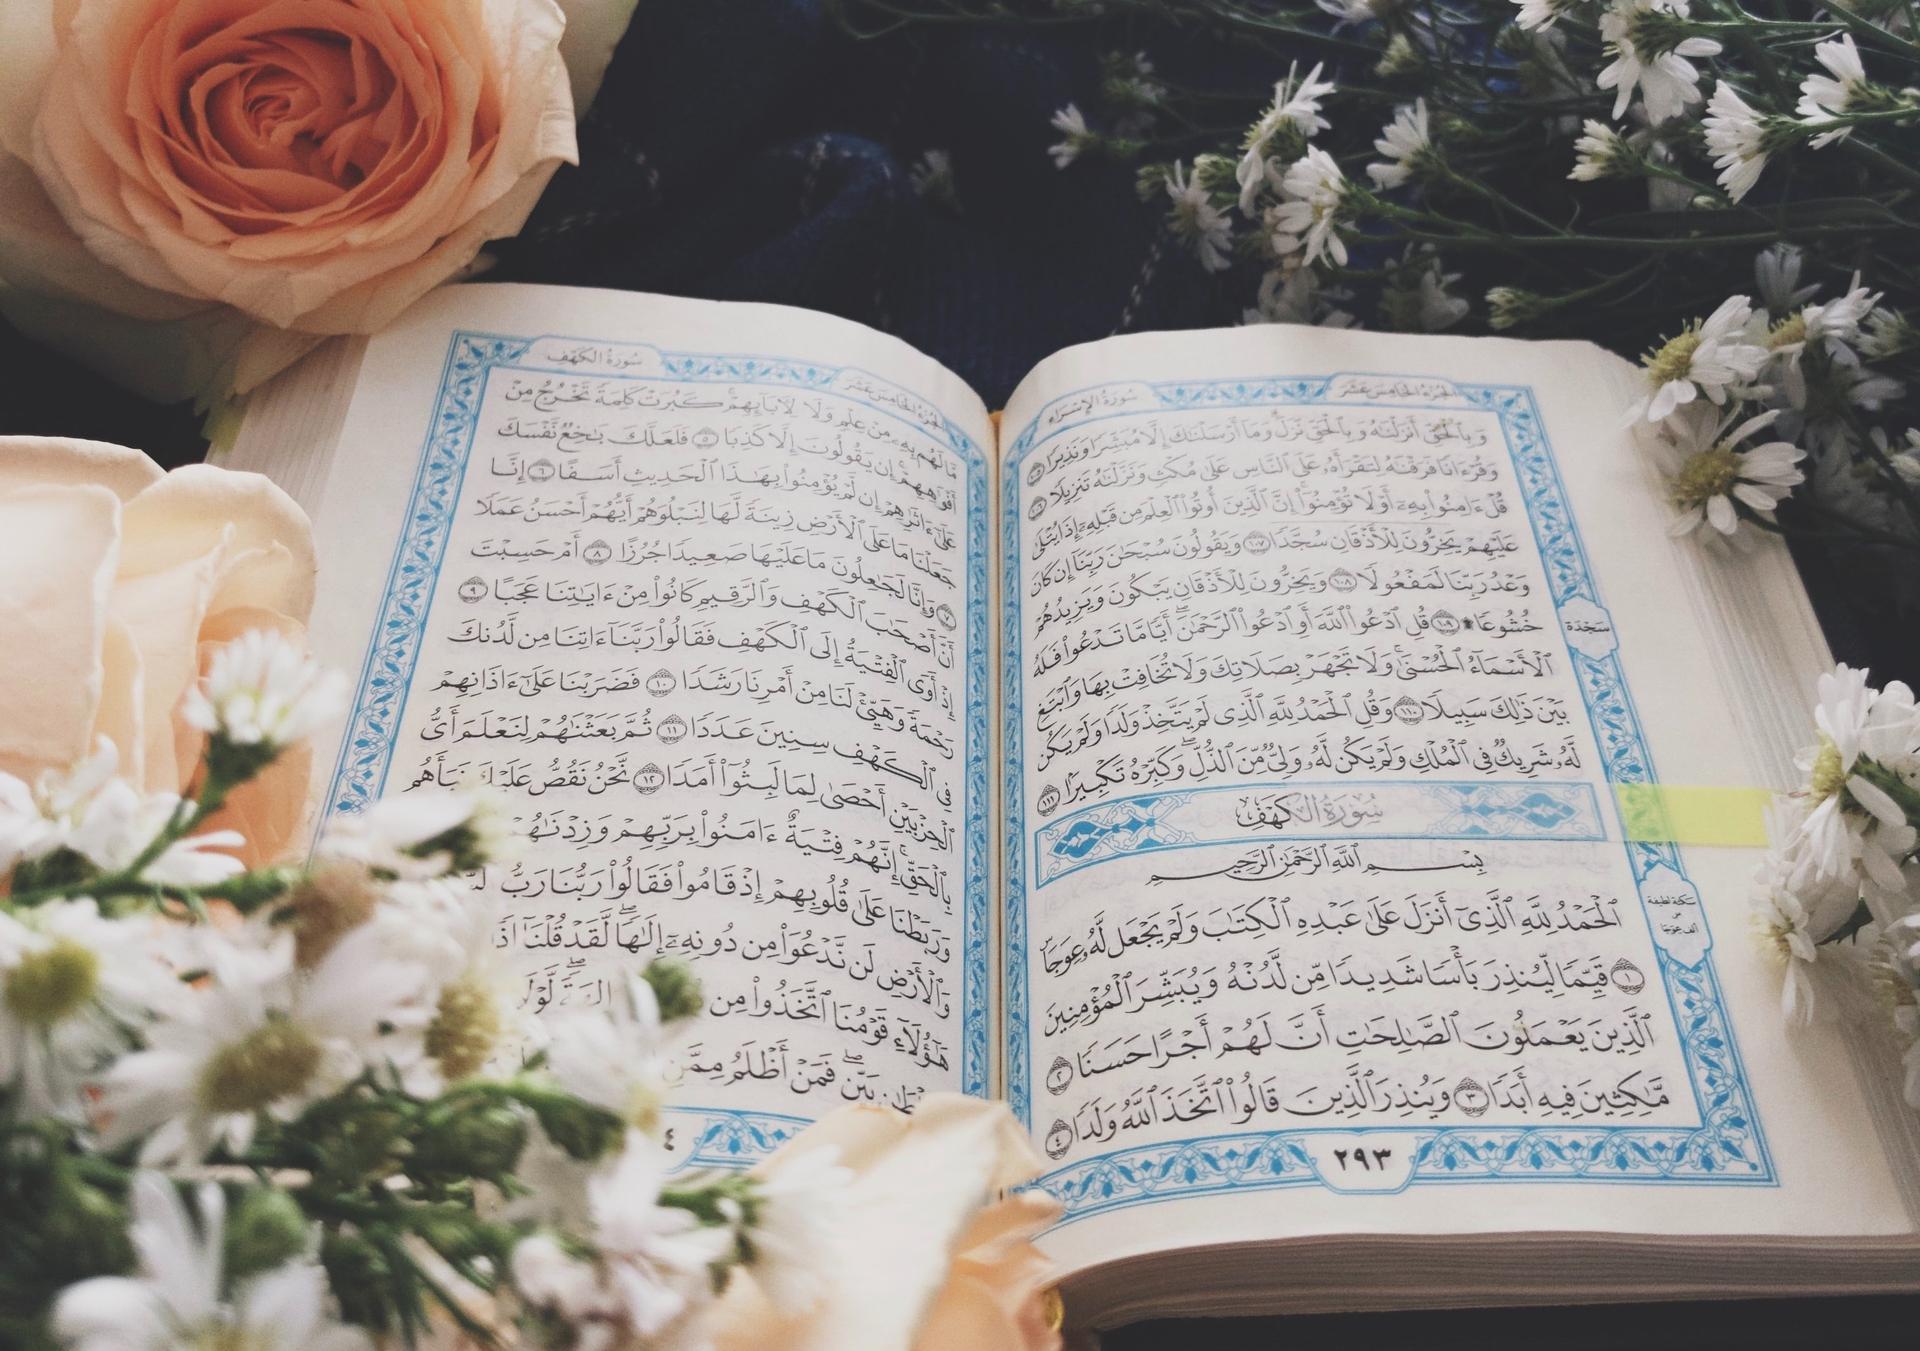 الجزء الخامس عشر
سورة الإسراء
وَبِٱلْحَقِّ أَنزَلْنَٰهُ وَبِٱلْحَقِّ نَزَلَ ۗ وَمَآ أَرْسَلْنَٰكَ إِلَّا مُبَشِّرًا وَنَذِيرًا ١٠٥
وَقُرْءَانًا فَرَقْنَٰهُ لِتَقْرَأَهُۥ عَلَى ٱلنَّاسِ عَلَىٰ مُكْثٍ وَنَزَّلْنَٰهُ تَنزِيلًا ١٠٦
قُلْ ءَامِنُوا۟ بِهِۦٓ أَوْ لَا تُؤْمِنُوٓا۟ ۚ إِنَّ ٱلَّذِينَ أُوتُوا۟ ٱلْعِلْمَ مِن قَبْلِهِۦٓ إِذَا يُتْلَىٰ
عَلَيْهِمْ يَخِرُّونَ لِلْأَذْقَانِ سُجَّدًا ١٠٧ وَيَقُولُونَ سُبْحَٰنَ رَبِّنَآ إِن كَانَ
وَعْدُ رَبِّنَا لَمَفْعُولًا ١٠٨ وَيَخِرُّونَ لِلْأَذْقَانِ يَبْكُونَ وَيَزِيدُهُمْ
خُشُوعًا ۩ ١٠٩ قُلِ ٱدْعُوا۟ ٱللَّهَ أَوِ ٱدْعُوا۟ ٱلرَّحْمَٰنَ ۖ أَيًّا مَّا تَدْعُوا۟ فَلَهُ
سَجْدَة
ٱلْأَسْمَآءُ ٱلْحُسْنَىٰ ۚ وَلَا تَجْهَرْ بِصَلَاتِكَ وَلَا تُخَافِتْ بِهَا وَٱبْتَغِ
بَيْنَ ذَٰلِكَ سَبِيلًا ١١٠ وَقُلِ ٱلْحَمْدُ لِلَّهِ ٱلَّذِى لَمْ يَتَّخِذْ وَلَدًا وَلَمْ يَكُن
لَّهُۥ شَرِيكٌ فِى ٱلْمُلْكِ وَلَمْ يَكُن لَّهُۥ وَلِىٌّ مِّنَ ٱلذُّلِّ ۖ وَكَبِّرْهُ تَكْبِيرًۢا ١١١
سُورَةُ الكَهْفِ
بِسْمِ ٱللَّهِ ٱلرَّحْمَٰنِ ٱلرَّحِيمِ
ٱلْحَمْدُ لِلَّهِ ٱلَّذِىٓ أَنزَلَ عَلَىٰ عَبْدِهِ ٱلْكِتَٰبَ وَلَمْ يَجْعَل لَّهُۥ عِوَجَا ۜ
سكتة لطيفة
١ قَيِّمًا لِّيُنذِرَ بَأْسًا شَدِيدًا مِّن لَّدُنْهُ وَيُبَشِّرَ ٱلْمُؤْمِنِينَ
ٱلَّذِينَ يَعْمَلُونَ ٱلصَّٰلِحَٰتِ أَنَّ لَهُمْ أَجْرًا حَسَنًا ٢
مَّٰكِثِينَ فِيهِ أَبَدًا ٣ وَيُنذِرَ ٱلَّذِينَ قَالُوا۟ ٱتَّخَذَ ٱللَّهُ وَلَدًا ٤
٢٩٣
الجزء الخامس عشر
سورة الكهف
مَّا لَهُم بِهِۦ مِنْ عِلْمٍ وَلَا لِءَابَآئِهِمْ ۚ كَبُرَتْ كَلِمَةً تَخْرُجُ مِنْ
أَفْوَٰهِهِمْ ۚ إِن يَقُولُونَ إِلَّا كَذِبًا ٥ فَلَعَلَّكَ بَٰخِعٌ نَّفْسَكَ
عَلَىٰٓ ءَاثَٰرِهِمْ إِن لَّمْ يُؤْمِنُوا۟ بِهَٰذَا ٱلْحَدِيثِ أَسَفًا ٦ إِنَّا
جَعَلْنَا مَا عَلَى ٱلْأَرْضِ زِينَةً لَّهَا لِنَبْلُوَهُمْ أَيُّهُمْ أَحْسَنُ عَمَلًا
٧ وَإِنَّا لَجَٰعِلُونَ مَا عَلَيْهَا صَعِيدًا جُرُزًا ٨ أَمْ حَسِبْتَ
أَنَّ أَصْحَٰبَ ٱلْكَهْفِ وَٱلرَّقِيمِ كَانُوا۟ مِنْ ءَايَٰتِنَا عَجَبًا ٩
إِذْ أَوَى ٱلْفِتْيَةُ إِلَى ٱلْكَهْفِ فَقَالُوا۟ رَبَّنَآ ءَاتِنَا مِن لَّدُنكَ
رَحْمَةً وَهَيِّئْ لَنَا مِنْ أَمْرِنَا رَشَدًا ١٠ فَضَرَبْنَا عَلَىٰٓ ءَاذَانِهِمْ
فِى ٱلْكَهْفِ سِنِينَ عَدَدًا ١١ ثُمَّ بَعَثْنَٰهُمْ لِنَعْلَمَ أَىُّ
ٱلْحِزْبَيْنِ أَحْصَىٰ لِمَا لَبِثُوٓا۟ أَمَدًا ١٢ نَّحْنُ نَقُصُّ عَلَيْكَ نَبَأَهُم
بِٱلْحَقِّ ۚ إِنَّهُمْ فِتْيَةٌ ءَامَنُوا۟ بِرَبِّهِمْ وَزِدْنَٰهُمْ
وَرَبَطْنَا عَلَىٰ قُلُوبِهِمْ إِذْ قَامُوا۟ فَقَالُوا۟ رَبُّنَا رَبُّ
وَٱلْأَرْضِ لَن نَّدْعُوَا۟ مِن دُونِهِۦٓ إِلَٰهًا ۖ لَّقَدْ قُلْنَآ إِذًا
هَٰٓؤُلَآءِ قَوْمُنَا ٱتَّخَذُوا۟ مِن ءَالِهَةً ۖ لَّوْلَا
بَيِّنٍ ۖ فَمَنْ أَظْلَمُ مِمَّنِ